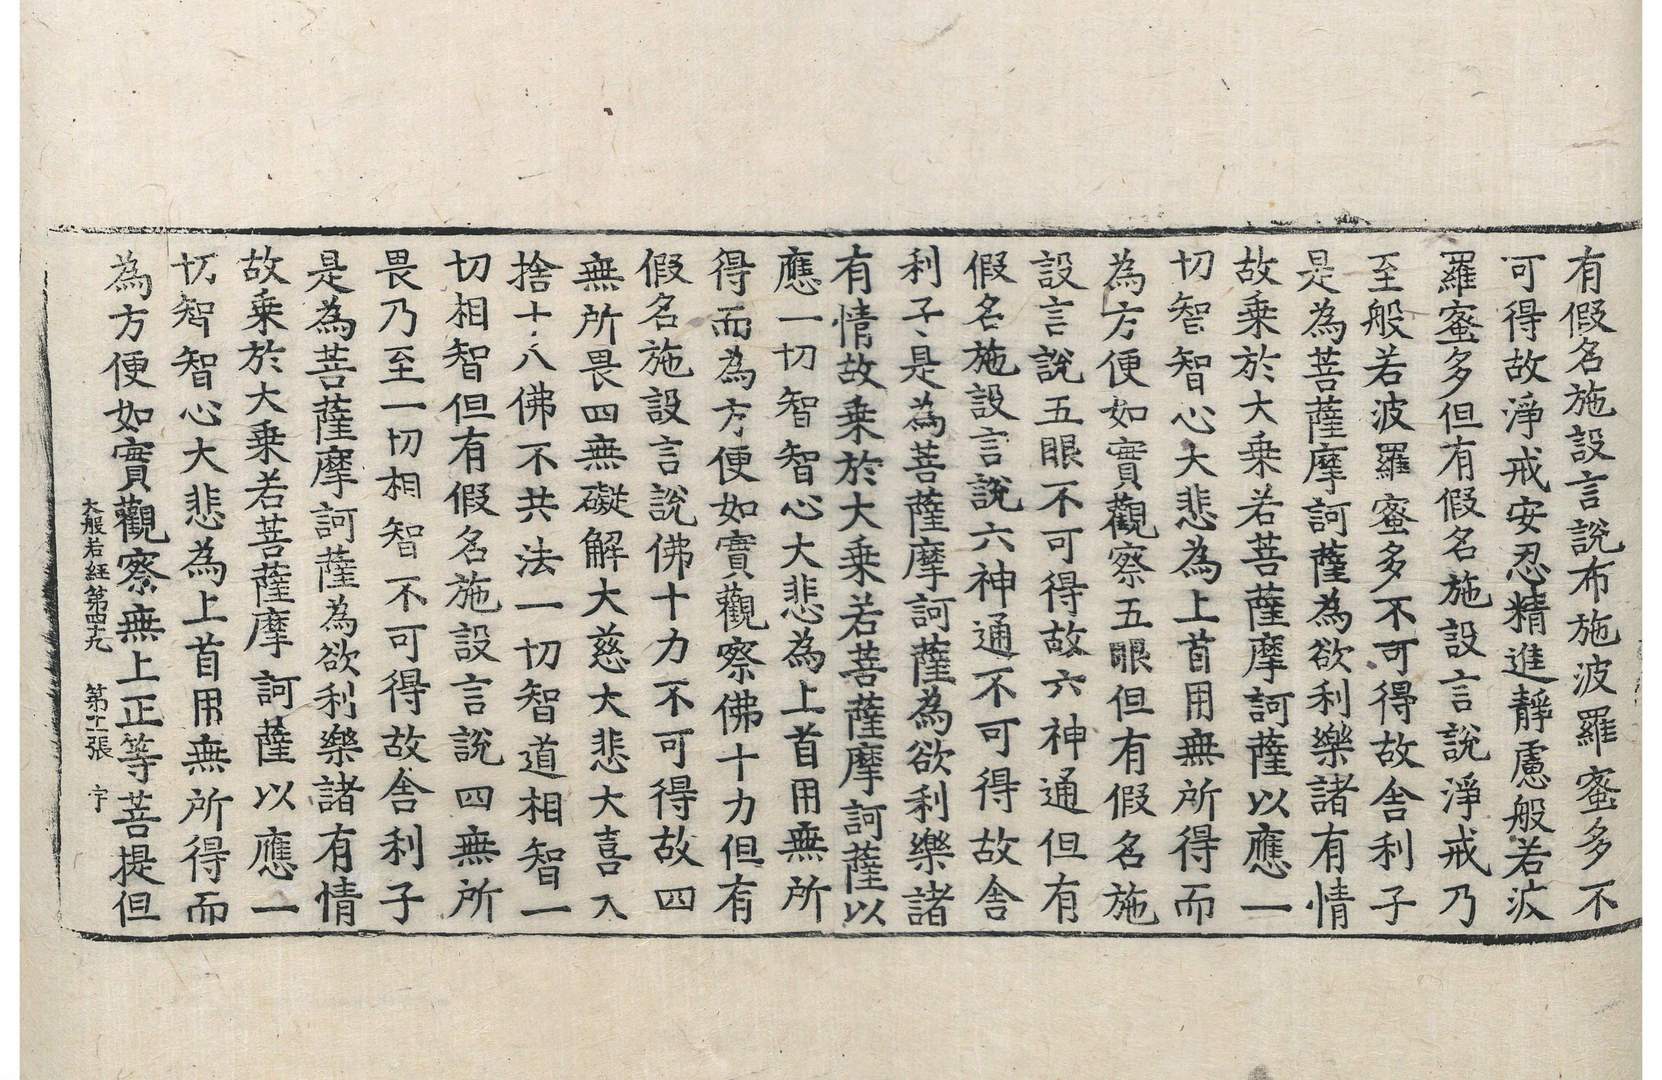 有假名施設言說布施波羅蜜多不
可得故淨戒安忍精進靜慮般若波
羅蜜多但有假名施設言說淨戒乃
至般若波羅蜜多不可得故舍利子
是為菩薩摩訶薩為欲利樂諸有情
故乘於大乘若菩薩摩訶薩以應一
切智智心大悲為上首用無所得而
為方便如實觀察五眼但有假名施
設言說五眼不可得故六神通但有
假名施設言說六神通不可得故舍
利子是為菩薩摩訶薩為欲利樂諸
有情故乘於大乘若菩薩摩訶薩以
應一切智智心大悲為上首用無所
得而為方便如實觀察佛十力但有
假名施設言說佛十力不可得故四
無所畏四無礙解大慈大悲大喜大
捨十八佛不共法一切智道相智一
切相智但有假名施設言說四無所
畏乃至一切相智不可得故舍利子
是為菩薩摩訶薩為欲利樂諸有情
故乘於大乘若菩薩摩訶薩以應一
切智智心大悲為上首用無所得而
為方便如實觀察無上正等菩提但
大般若經第四十九 第十二張 宇